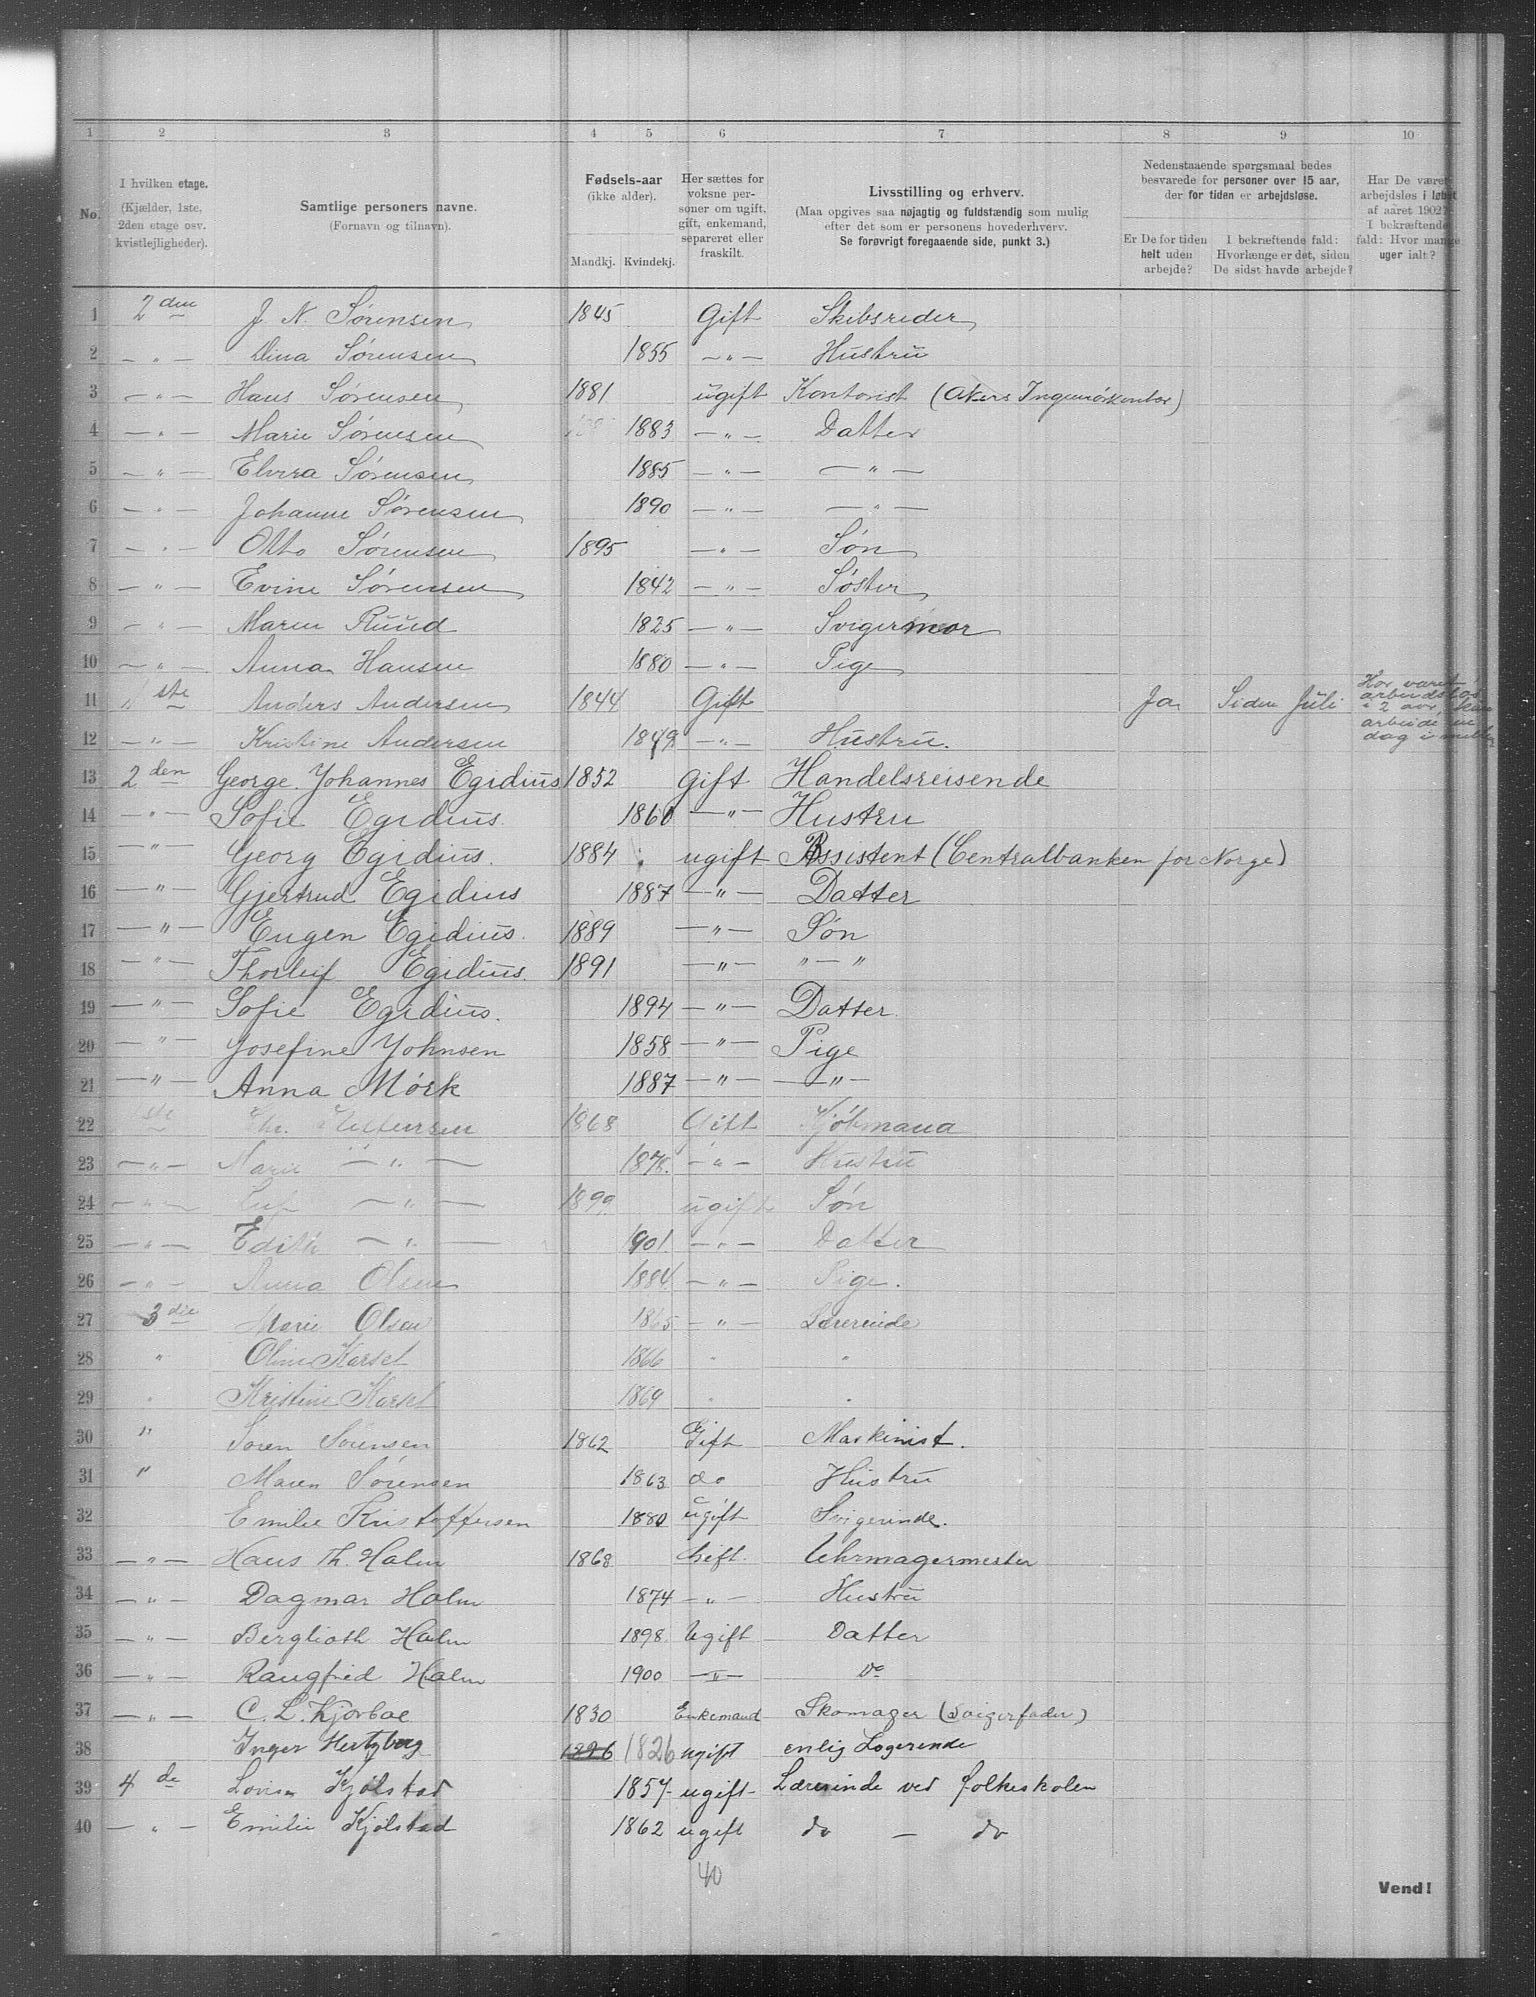 1 2 3 4 5 6 7 8 9 10
No.
I hvilken etage.
(Kjælder, 1ste,
2den etage osv.
kvistlejligheder).
Samtlige personers navne.
(Fornavn og tilnavn).
Fødsels-aar
(ikke alder).
Mandkj. Kvindekj.
Her sættes for
voksne per-
soner om ugift,
gift, enkemand,
separeret eller
fraskilt.
Livsstilling og erhverv.
(Maa opgives saa nøjagtig og fuldstændig som mulig
efter det som er personens hovederhverv.
Se forøvrigt foregaaende side, punkt 3.)
Nedenstaaende spørgsmaal bedes
besvarede for personer over 15 aar,
der for tiden er arbejdsløse.
Er De for tiden
helt uden
arbejde?
I bekræftende fald:
Hvorlænge er det, siden
De sidst havde arbejde?
Har De været
arbejdsløs i løbet
af aaret 1902?
I bekræftende
fald: Hvor mange
uger ialt?
1 2den J. N. Sørensen 1845 Gift Skibsreder
2 — " — Dina Sørensen 1855 — " — Hustru
3 — " — Hans Sørensen 1881 ugift Kontorist (Akers Ingeniørkontor)
4 — " — Marie Sørensen 1883 — " — Datter
5 — " — Elvira Sørensen 1885 — " — — " —
6 — " — Johanne Sørensen 1890 — " — — " —
7 — " — Otto Sørensen 1895 — " — Søn
8 — " — Evine Sørensen 1842 — " — Søster
9 — " — Maren Ruud 1825 — " — Svigermor
10 — " — Anna Hansen 1880 — " — Pige
11 1ste Anders Andersen 1844 Gift Ja Siden Juli Har været arbeidsløs i 2 aar, kun arbeide en dag i
12 — " — Kristine Andersen 1849 — " — Hustru.
13 2den George Johannes Egidius 1852 Gift Handelsreisende
14 — " — Sofie Egidius. 1860 — " — Hustru
15 — " — Georg Egidius. 1884 ugift Assistent (Centralbanken for Norge)
16 — " — Gjertrud Egidius 1887 — " — Datter
17 — " — Eugen Egidius. 1889 — " — Søn
18 — " — Thorleif Egidius. 1891 — " — " — "
19 — " — Sofie Egidius. 1894 — " — Datter
20 — " — Josefine Johnsen 1858 — " — Pige
21 — " — Anna Mörk 1887 — " — — " —
22 1ste Chr. 1868 Gift Kjöbmand
23 — " — Marie — " — 1878. — " — Hustru
24 — " — — " — 1899 ugift Søn
25 — " — Edith — " — 1901 — " — Datter
26 — " — Anna Olsen 1884 — " — Pige.
27 3die Marie Olsen 1865 — " — Lærerinde
28 " Oline Karset 1866 " "
29 " Kristine Karset 1869 " "
30 " Søren Sørensen 1862 Gift Maskinist.
31 " Maren Sørensen 1863 do Hustru
32 Emilie Kristoffersen 1880 ugift Svigerinde.
33 — " — Hans Th. Holm 1868 Gift. Uhrmagermester
34 — " — Dagmar Holm 1874 — " — Hustru
35 — " — Berglioth Holm 1898 Ugift Datter
36 — " — Rangfred Holm 1900 — " — Do
37 — " — C. L. Kjørboe 1830 Enkemand Skomager (Svigerfader)
38 Inger Hertzberg 1826 1826 ugift enlig Logerende
39 4de Lovisa Kjölstad 1857 ugift Lærerinde ved folkeskolen
40 — " — Emilie Kjölstad 1862 ugift do — do
40
Vend!